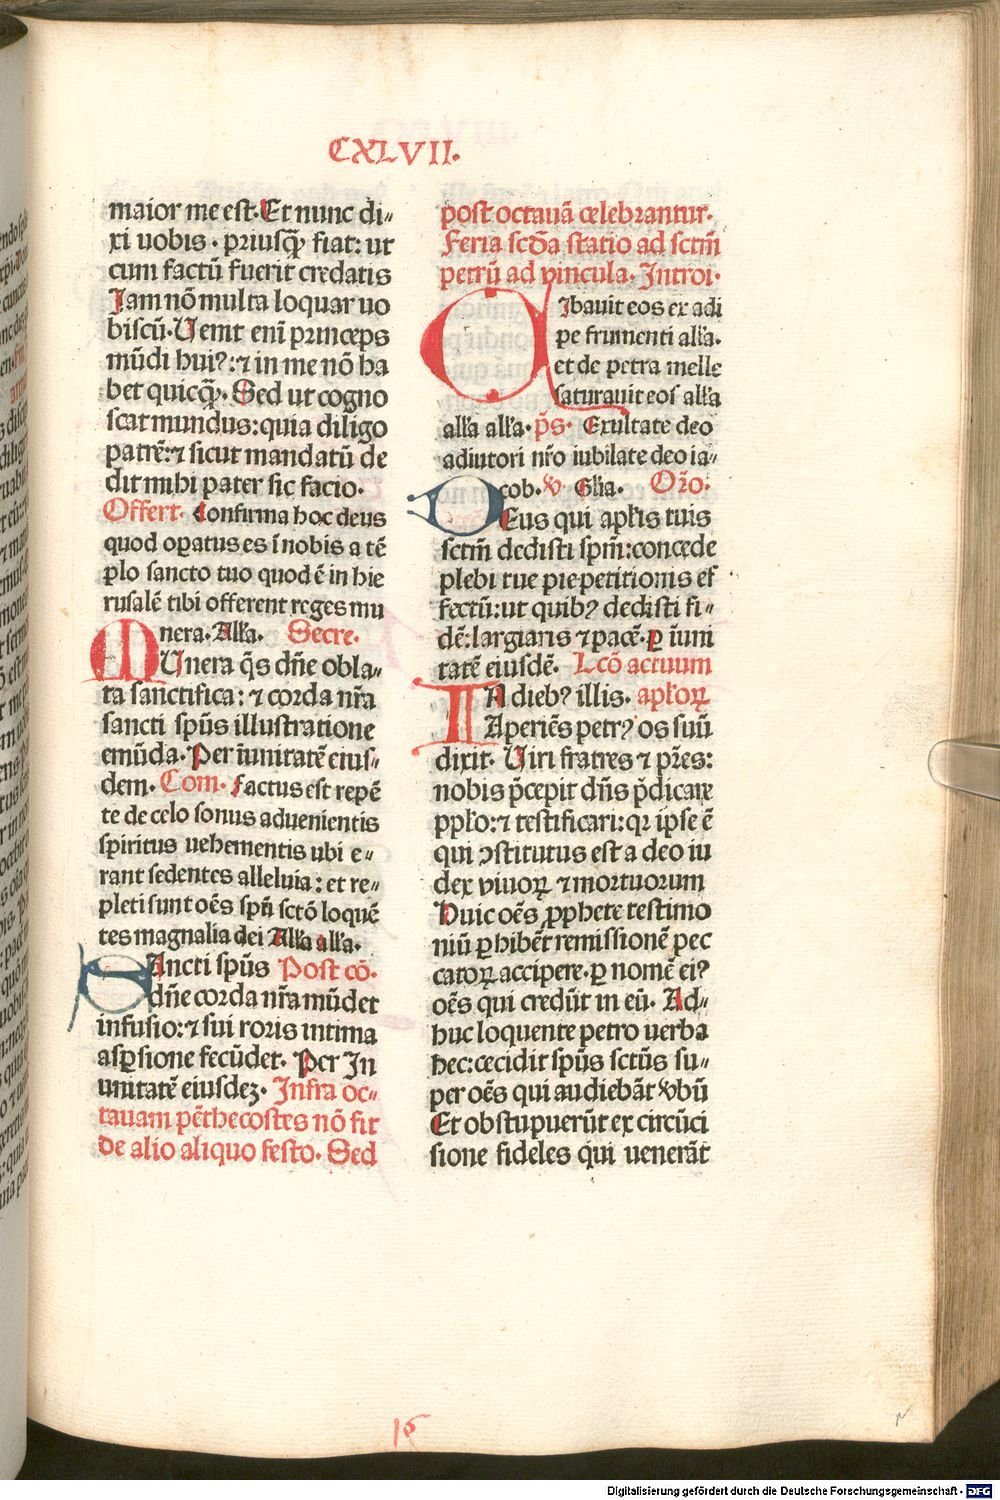 CXLVII.
maior me est. Et nunc di„
xi uobis. priusꝙ fiat: ut
cum factū fuerit credatis
Jam nō multa loquar uo
biscū. Uenit eni̅ princeps
mūdi huiꝰ: ⁊ in me nō ha
bet quicꝙ. Sed ut cogno
scat mundus: quia diligo
patrē: ⁊ sicut mandatū de
dit mihi pater sic facio.
Offert. Confirma hoc deus
quod oꝑatus es i̅ nobis a tē
plo sancto tuo quod ē in hie
rusalē tibi offerent reges mu
nera. Alła. Secre.
MUnera q̄s dn̄e obla„
ta sanctifica: ⁊ corda nr̄a
sancti sp̄us illustratione
emūda. Per i̅unitatē eius„
dem. Com. Factus est repē
te de celo sonus aduenientis
spiritus uehementis ubi e„
rant sedentes alleluia: et re„
pleti sunt oēs spū sctō loquē
tes magnalia dei Alła alła.
SAncti sp̄us Post cō.
dn̄e corda nr̄a mūdet
infusio: ⁊ sui roris intima
asꝑsione fecūdet. Per In
unitatē eiusdeꝫ. Infra oc„
tauam pēthecostes nō fit
de alio aliquo festo. Sed
post octauā celebrantur.
Feria scd̄a statio ad sctm̄
petrū ad vincula. Introi.
CIbauit eos ex adi
pe frumenti alła.
et de petra melle
saturauit eos alła
alła alła. p̄s. Exultate deo
adiutori nr̄o iubilate deo ia„
cob. ꝟ Głia. Or̄o.
DEus qui apłis tuis
sctm̄ dedisti spm̄: concede
plebi tue pie petitionis ef
fectū: ut quibꝰ dedisti fi„
dē: largiaris ⁊ pacē. ꝑ i̅uni
tatē eiusdē. Lcō actuum
IN diebꝰ illis. apłoꝝ
Aperiēs petrꝰ os suū
dixit. Uiri fratres ⁊ pr̄es:
nobis p̄cepit dn̄s p̄dicare
ppło: ⁊ testificari: qꝛ ipse ē
qui ꝯstitutus est a deo iu
dex viuoꝝ ⁊ mortuorum
Huic oēs ꝓphete testimo
niū ꝑhibēt remissionē pec
catoꝝ accipere. ꝑ nomē eiꝰ
oēs qui credūt in eū. Ad„
huc loquente petro uerba
hec: cecidit sp̄us sctūs su„
per oēs qui audiebāt ꝟbū
Et obstupuerūt ex circūci
sione fideles qui uenerāt
16
Digitalisierung gefördert durch die Deutsche Forschungsgemeinschaft - DFG